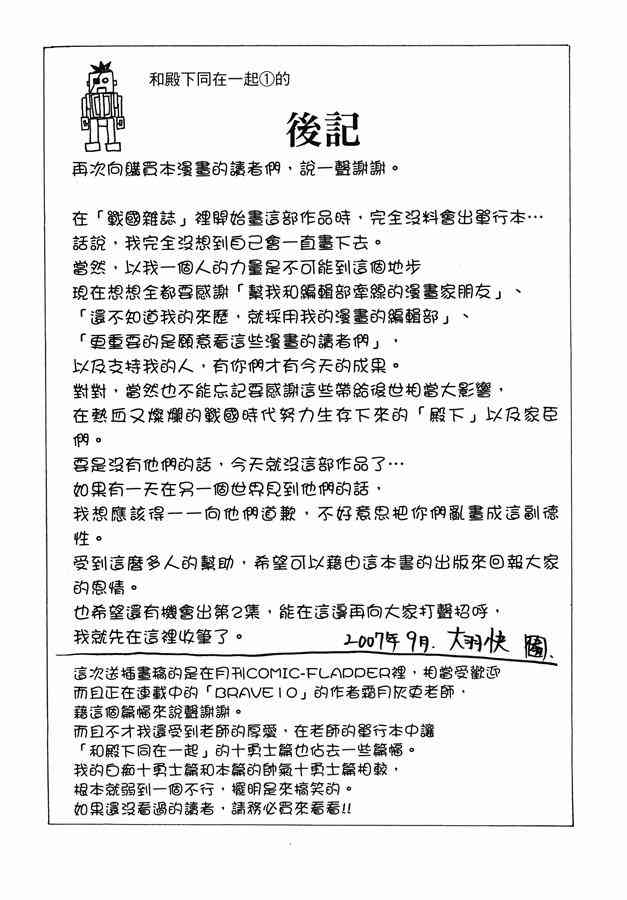 和殿下同在一起①的
後記
再次向購買本漫畫的讀者們，說一聲謝謝。
在「戰國雜誌」裡開始畫這部作品時，完全沒料會出單行本…
話說，我完全沒想到自己會一直畫下去。
當然，以我一個人的力量是不可能到這個地步
現在想想全都要感謝「幫我和編輯部牽線的漫畫家朋友」、
「還不知道我的來歷，就採用我的漫畫的編輯部」、
「更重要的是願意看這些漫畫的讀者們」，
以及支持我的人，有你們才有今天的成果。
對對，當然也不能忘記要感謝這些帶給後世相當大影響，
在熱血又燦爛的戰國時代努力生存下來的「殿下」以及家臣
們。
要是沒有他們的話，今天就沒這部作品了…
如果有一天在另一個世界見到他們的話，
我想應該得一一向他們道歉，不好意思把你們亂畫成這副德
性。
受到這麼多人的幫助，希望可以藉由這本書的出版來回報大家
的恩情。
也希望還有機會出第2集，能在這邊再向大家打聲招呼，
我就先在這裡收筆了。
2007年9月. 大羽快
這次送插畫稿的是在月刊COMIC-FLAPPER裡，相當受歡迎
而且正在連載中的「BRAVE10」的作者霜月灰吏老師，
藉這個篇幅來說聲謝謝。
而且不才我還受到老師的厚愛，在老師的單行本中讓
「和殿下同在一起」的十勇士篇也佔去一些篇幅。
我的白痴十勇士篇和本篇的帥氣十勇士篇相較，
根本就弱到一個不行，擺明是來搞笑的。
如果還沒看過的讀者，請務必買來看看!!